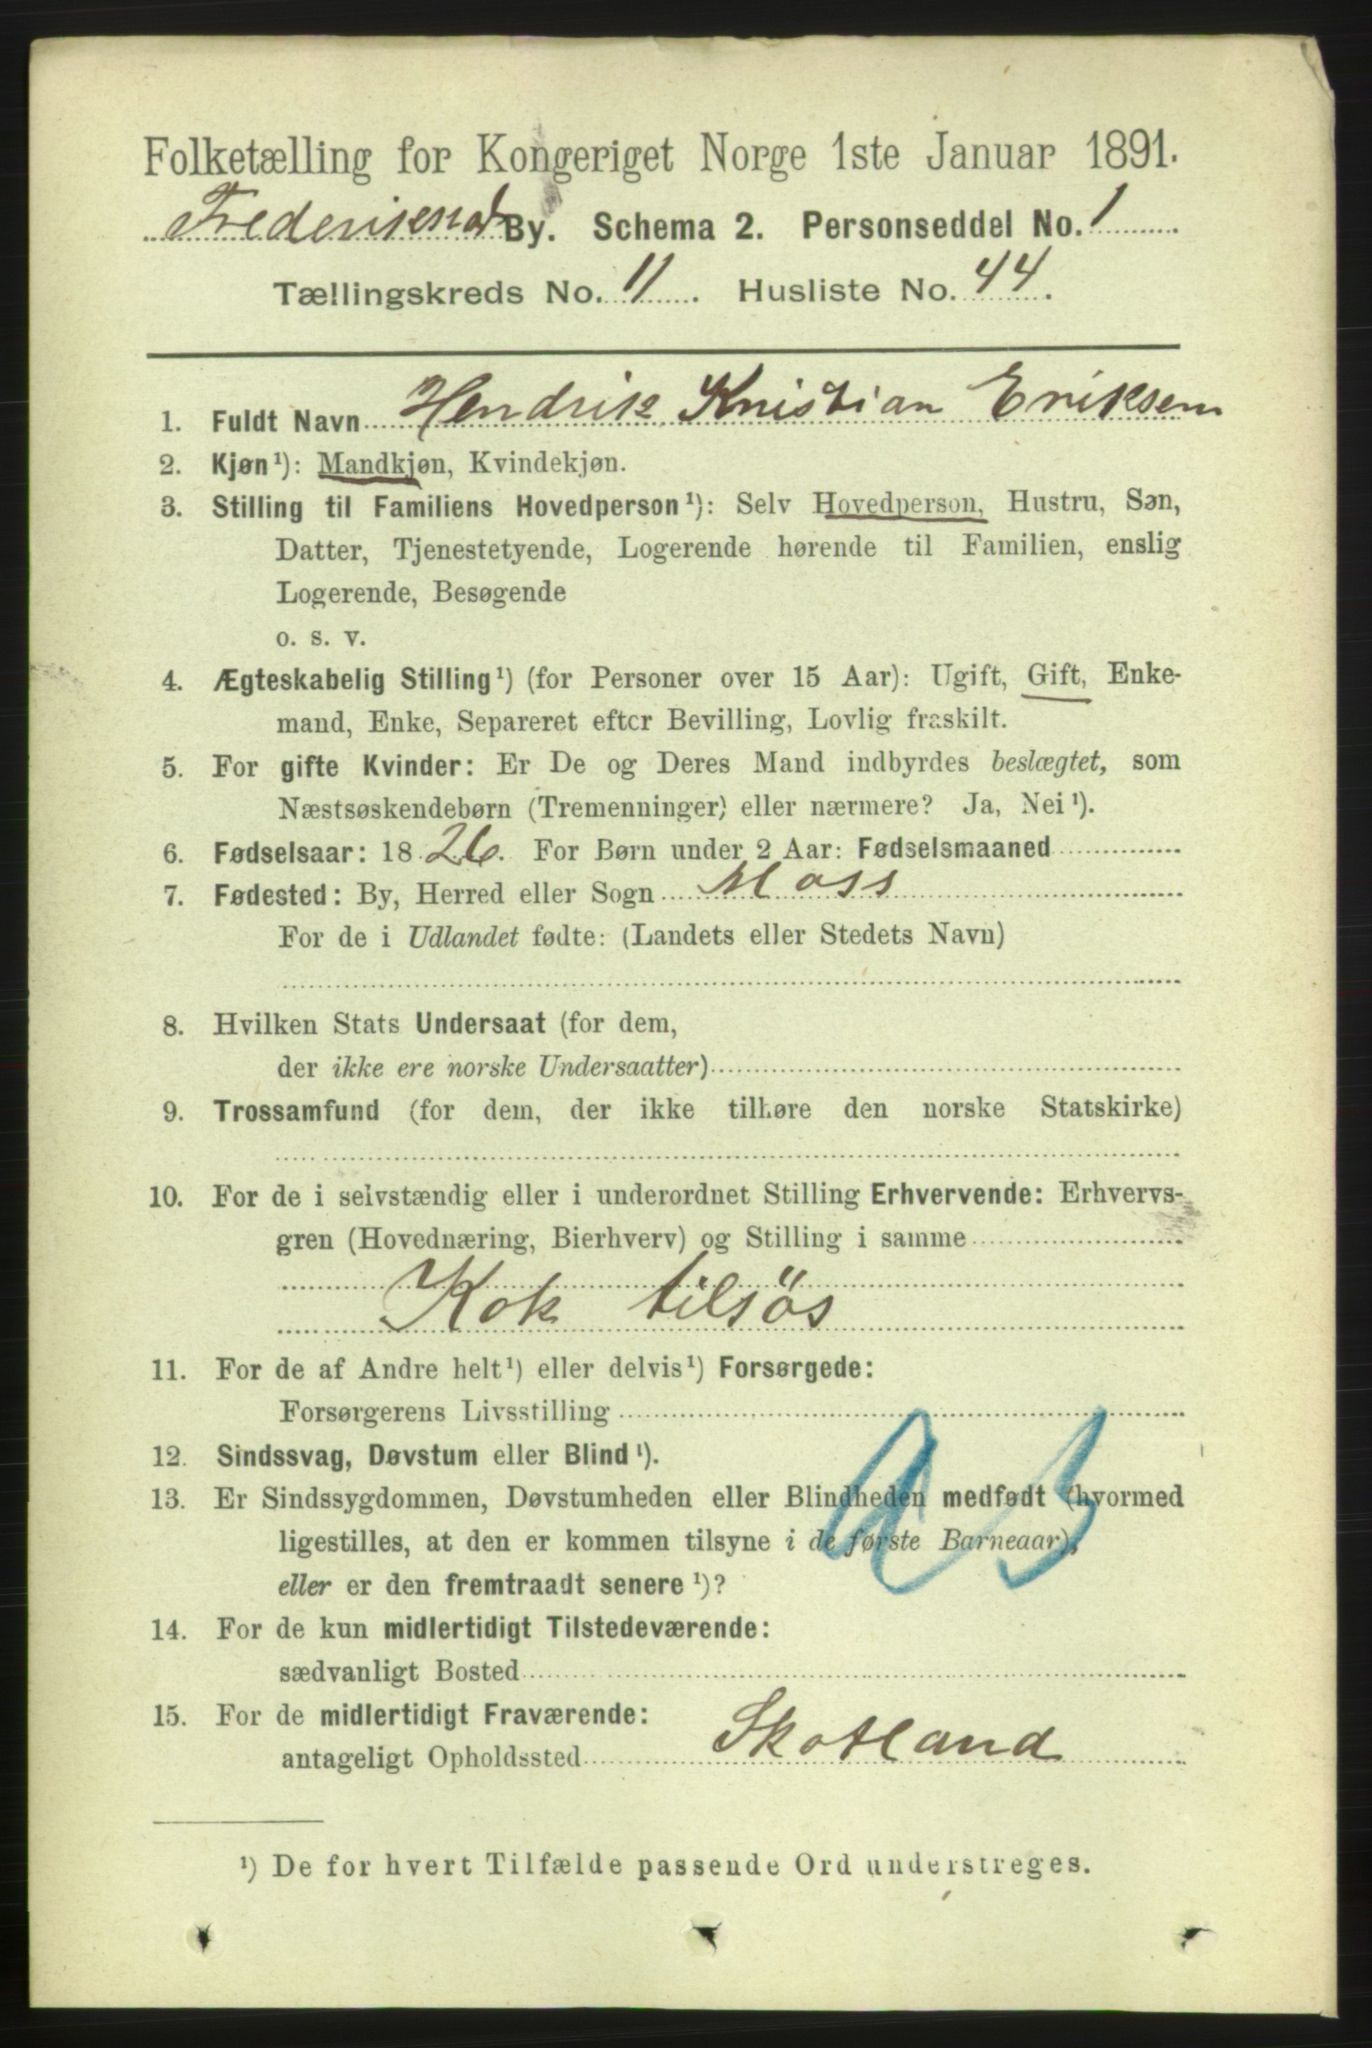 Folketælling for Kongeriget Norge 1ste Januar 1891.
Frederikstad By. Schema 2. Personseddel No. 1
Tællingskreds No. 11. Husliste No. 44.
1. Fuldt Navn Hendrik Kristian Eriksen
2. Kjøn¹): Mandkjøn, Kvindekjøn.
3. Stilling til Familiens Hovedperson¹): Selv Hovedperson, Hustru, Søn,
Datter, Tjenestetyende, Logerende hørende til Familien, enslig
Logerende, Besøgende
o. s. v.
4. Ægteskabelig Stilling¹) (for Personer over 15 Aar): Ugift, Gift, Enke-
mand, Enke, Separeret efter Bevilling, Lovlig fraskilt.
5. For gifte Kvinder: Er De og Deres Mand indbyrdes beslægtet, som
Næstsøskendebørn (Tremenninger) eller nærmere? Ja, Nei¹).
6. Fødselsaar: 1826. For Børn under 2 Aar: Fødselsmaaned
7. Fødested: By, Herred eller Sogn Moss
For de i Udlandet fødte: (Landets eller Stedets Navn)
8. Hvilken Stats Undersaat (for dem,
der ikke ere norske Undersaatter)
9. Trossamfund (for dem, der ikke tilhøre den norske Statskirke)
10. For de i selvstændig eller i underordnet Stilling Erhvervende: Erhvervs-
gren (Hovednæring, Bierhverv) og Stilling i samme
Kok tilsös
11. For de af Andre helt¹) eller delvis¹) Forsørgede:
Forsørgerens Livsstilling
12. Sindssvag, Døvstum eller Blind¹).
13. Er Sindssygdommen, Døvstumheden eller Blindheden medfødt (hvormed
ligestilles, at den er kommen tilsyne i de første Barneaar),
eller er den fremtraadt senere¹)?
14. For de kun midlertidigt Tilstedeværende:
sædvanligt Bosted
15. For de midlertidigt Fraværende:
antageligt Opholdssted Skotland
¹) De for hvert Tilfælde passende Ord understreges.